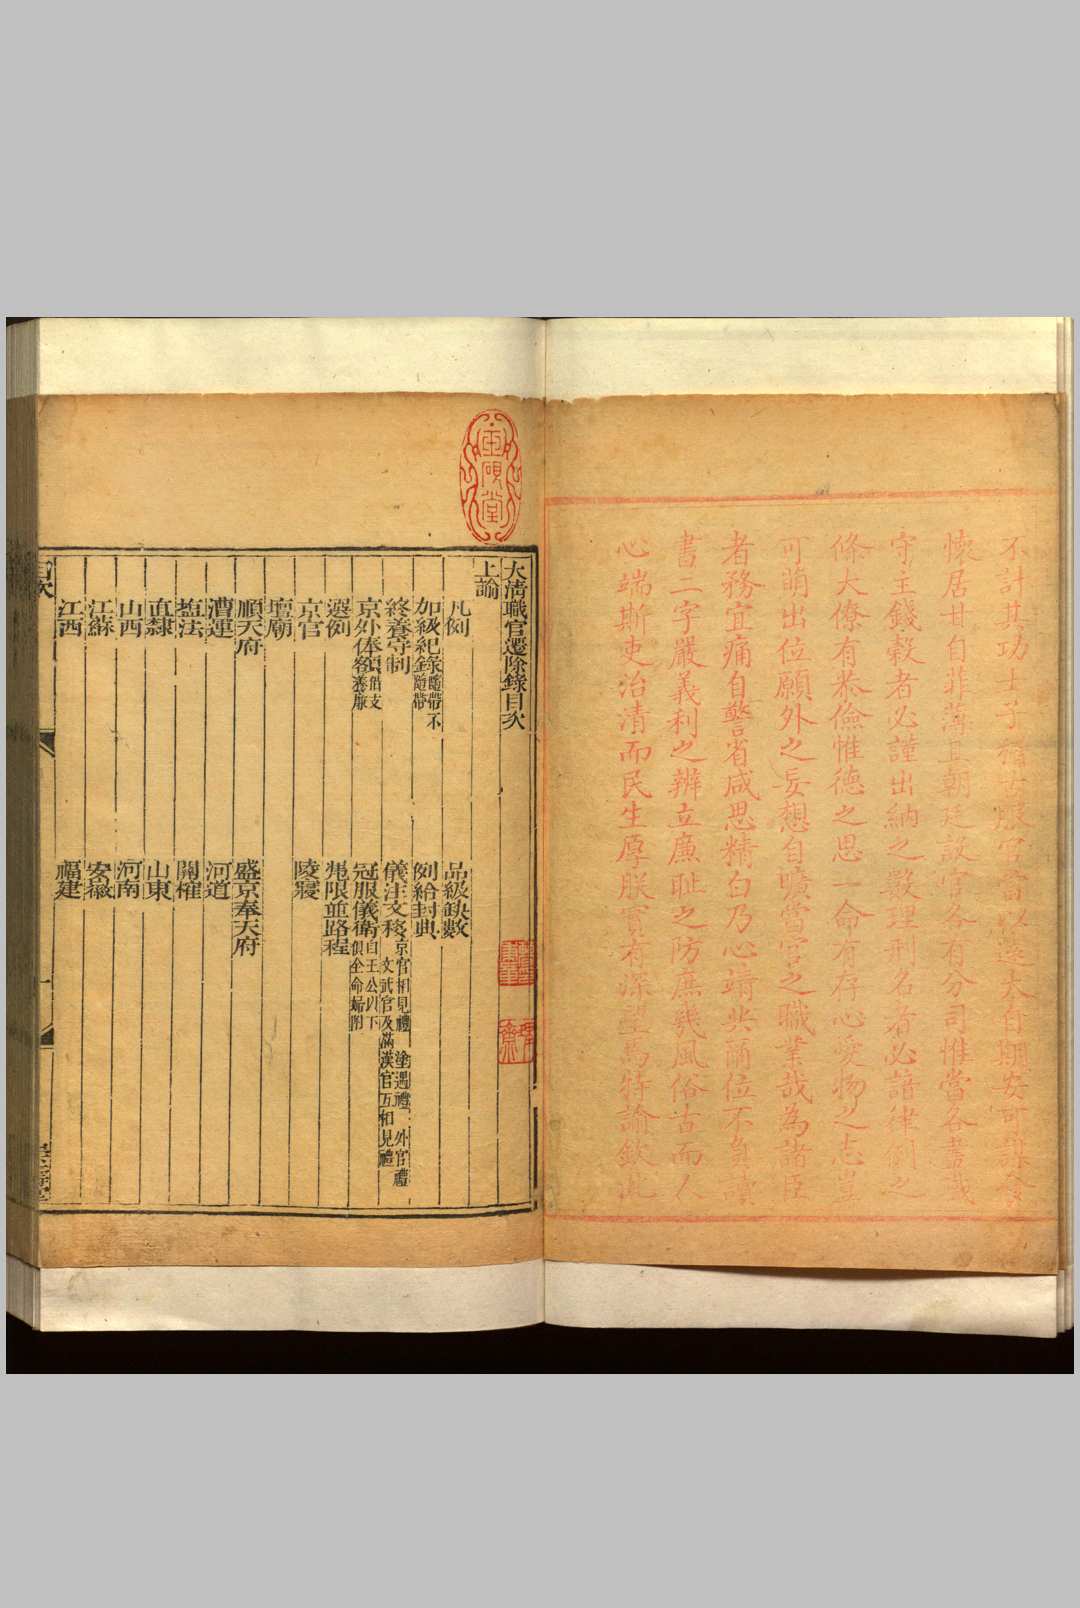 不計其功士子猶女服官當以遠大自期安可
懷居甘自菲薄且朝廷設官各有分司惟當各
守主錢穀者必謹出納之數理刑名者必諳律例之
條大僚有恭儉惟德之思一命有存心愛物之志豈
可萌出位願外之妄想自曠官之職業哉為諸臣
者務宜痛自警省咸思精白乃心靖共爾位不
書二字嚴義利之辨立廉恥之防庶幾風俗古而人
心端斯吏治清而民生厚朕實有深望焉特諭欽此
玉硯堂
大清職官遷除錄目次
上諭
凡例 品級缺數
加級紀錄隨帶不隨帶 例給封典
終養守制 儀注文移京官相見禮 塗遇禮 外官禮 文武官及滿漢官互相見禮
京外俸銀借支養廉 冠服儀衛自王公以下俱全命婦附
選例 憑限並路程
京官 陵寢
壇廟
順天府 盛京奉天府
漕運 河道
鹽法 關榷
直隸 山東
山西 河南
江蘇 安徽
江西 福建
目次
一